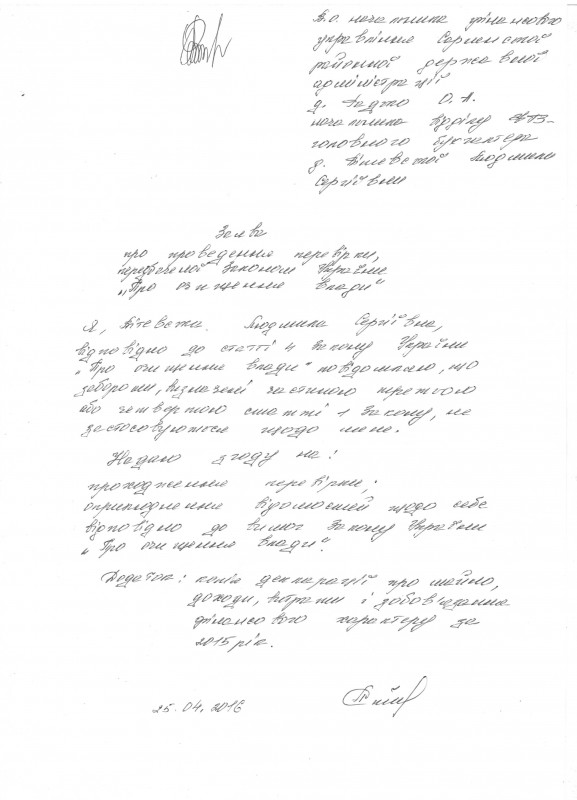 В.о. начальника фінансового
управління
районної державної
адміністрації
О. А.
начальника відділу
головного бухгалтера
Людмили
Сергіївни
Заява
про проведення перевірки,
передбаченої Законом України
„Про очищення влади"
Я, Людмила Сергіївна,
відповідно до статті 4 Закону України
„Про очищення влади" повідомляю, що
заборони, визначені частиною третьою
або четвертою статті 1 Закону, не
застосовуються щодо мене.
Надаю згоду на:
проходження перевірки;
оприлюднення відомостей щодо себе
відповідно до вимог Закону України
„Про очищення влади".
Додаток: копія декларації про майно,
доходи, витрати і зобов'язання
фінансового характеру за
2015 рік.
25.04.2016